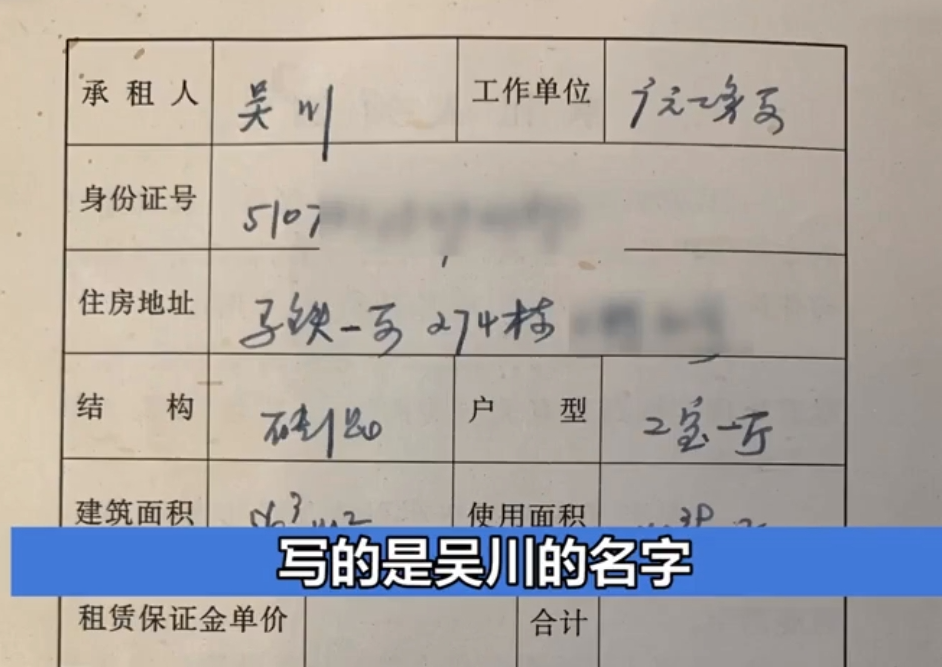 承租人 吴川 工作单位 广元工务段
身份证号 5107
住房地址 马铁一区 274栋
结构 砖混 户型 2室一厅
建筑面积 使用面积
写的是吴川的名字
租赁保证金单价 合计